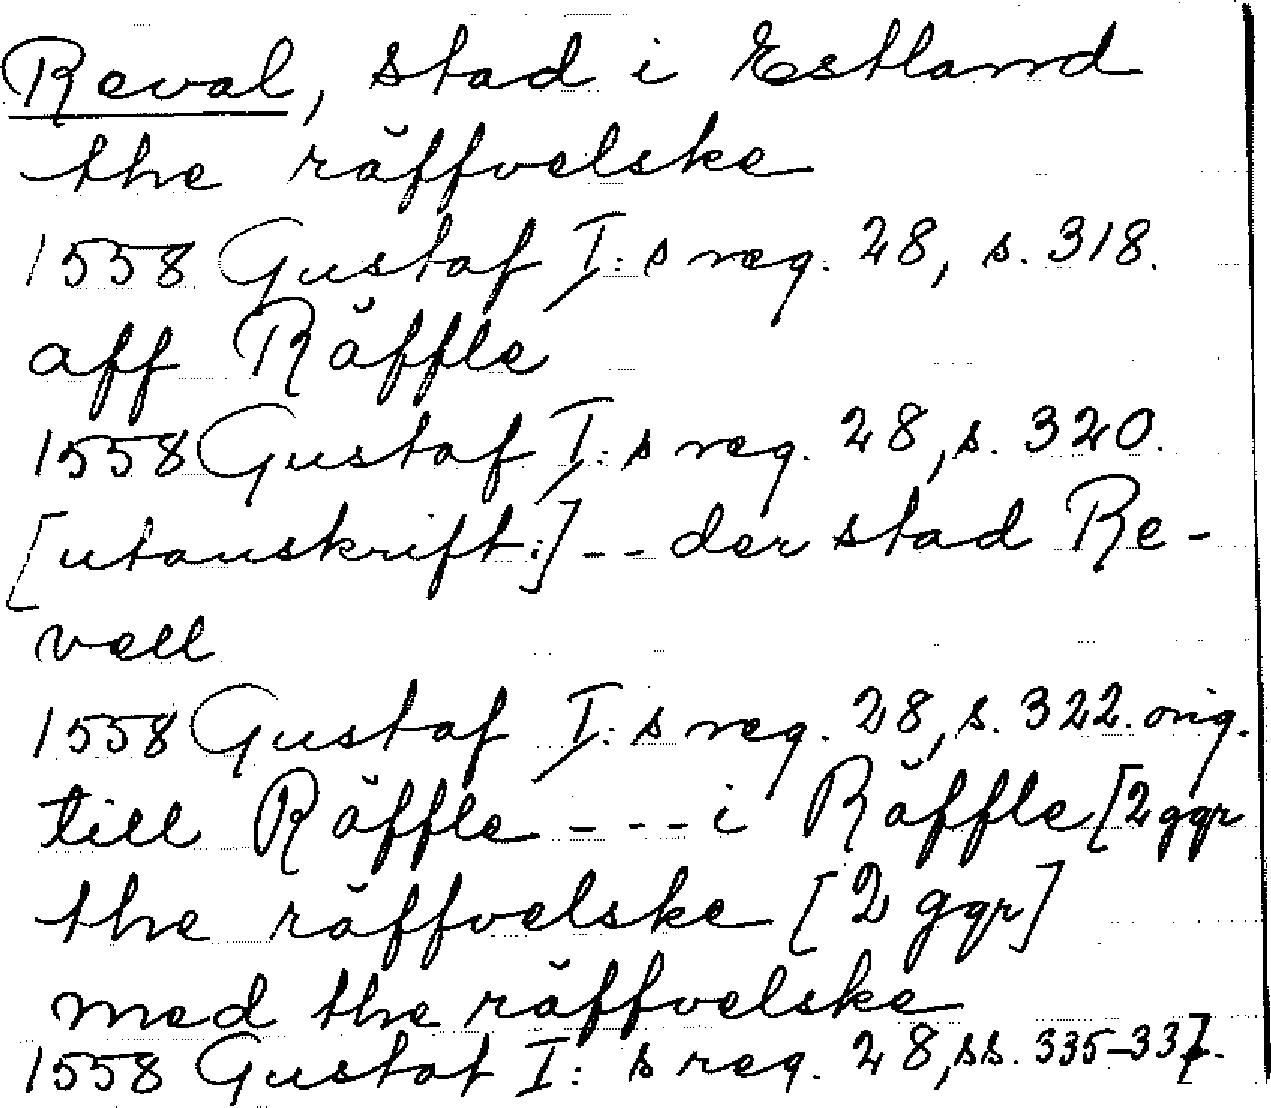 Reval, stad i Estland
the räffvelske
1558 Gustaf I:s reg. 28, s. 318.
aff Räffle
1558 Gustaf I:s reg. 28, s. 320.
[utanskrift:] -- der stad Re-
vell
1558 Gustaf I:s reg. 28, s. 322. orig.
till Räffle --- i Räffle [2 ggr
the räffvelske [2 ggr]
med the räffvelske
1558 Gustaf I:s reg. 28, ss. 335-337.